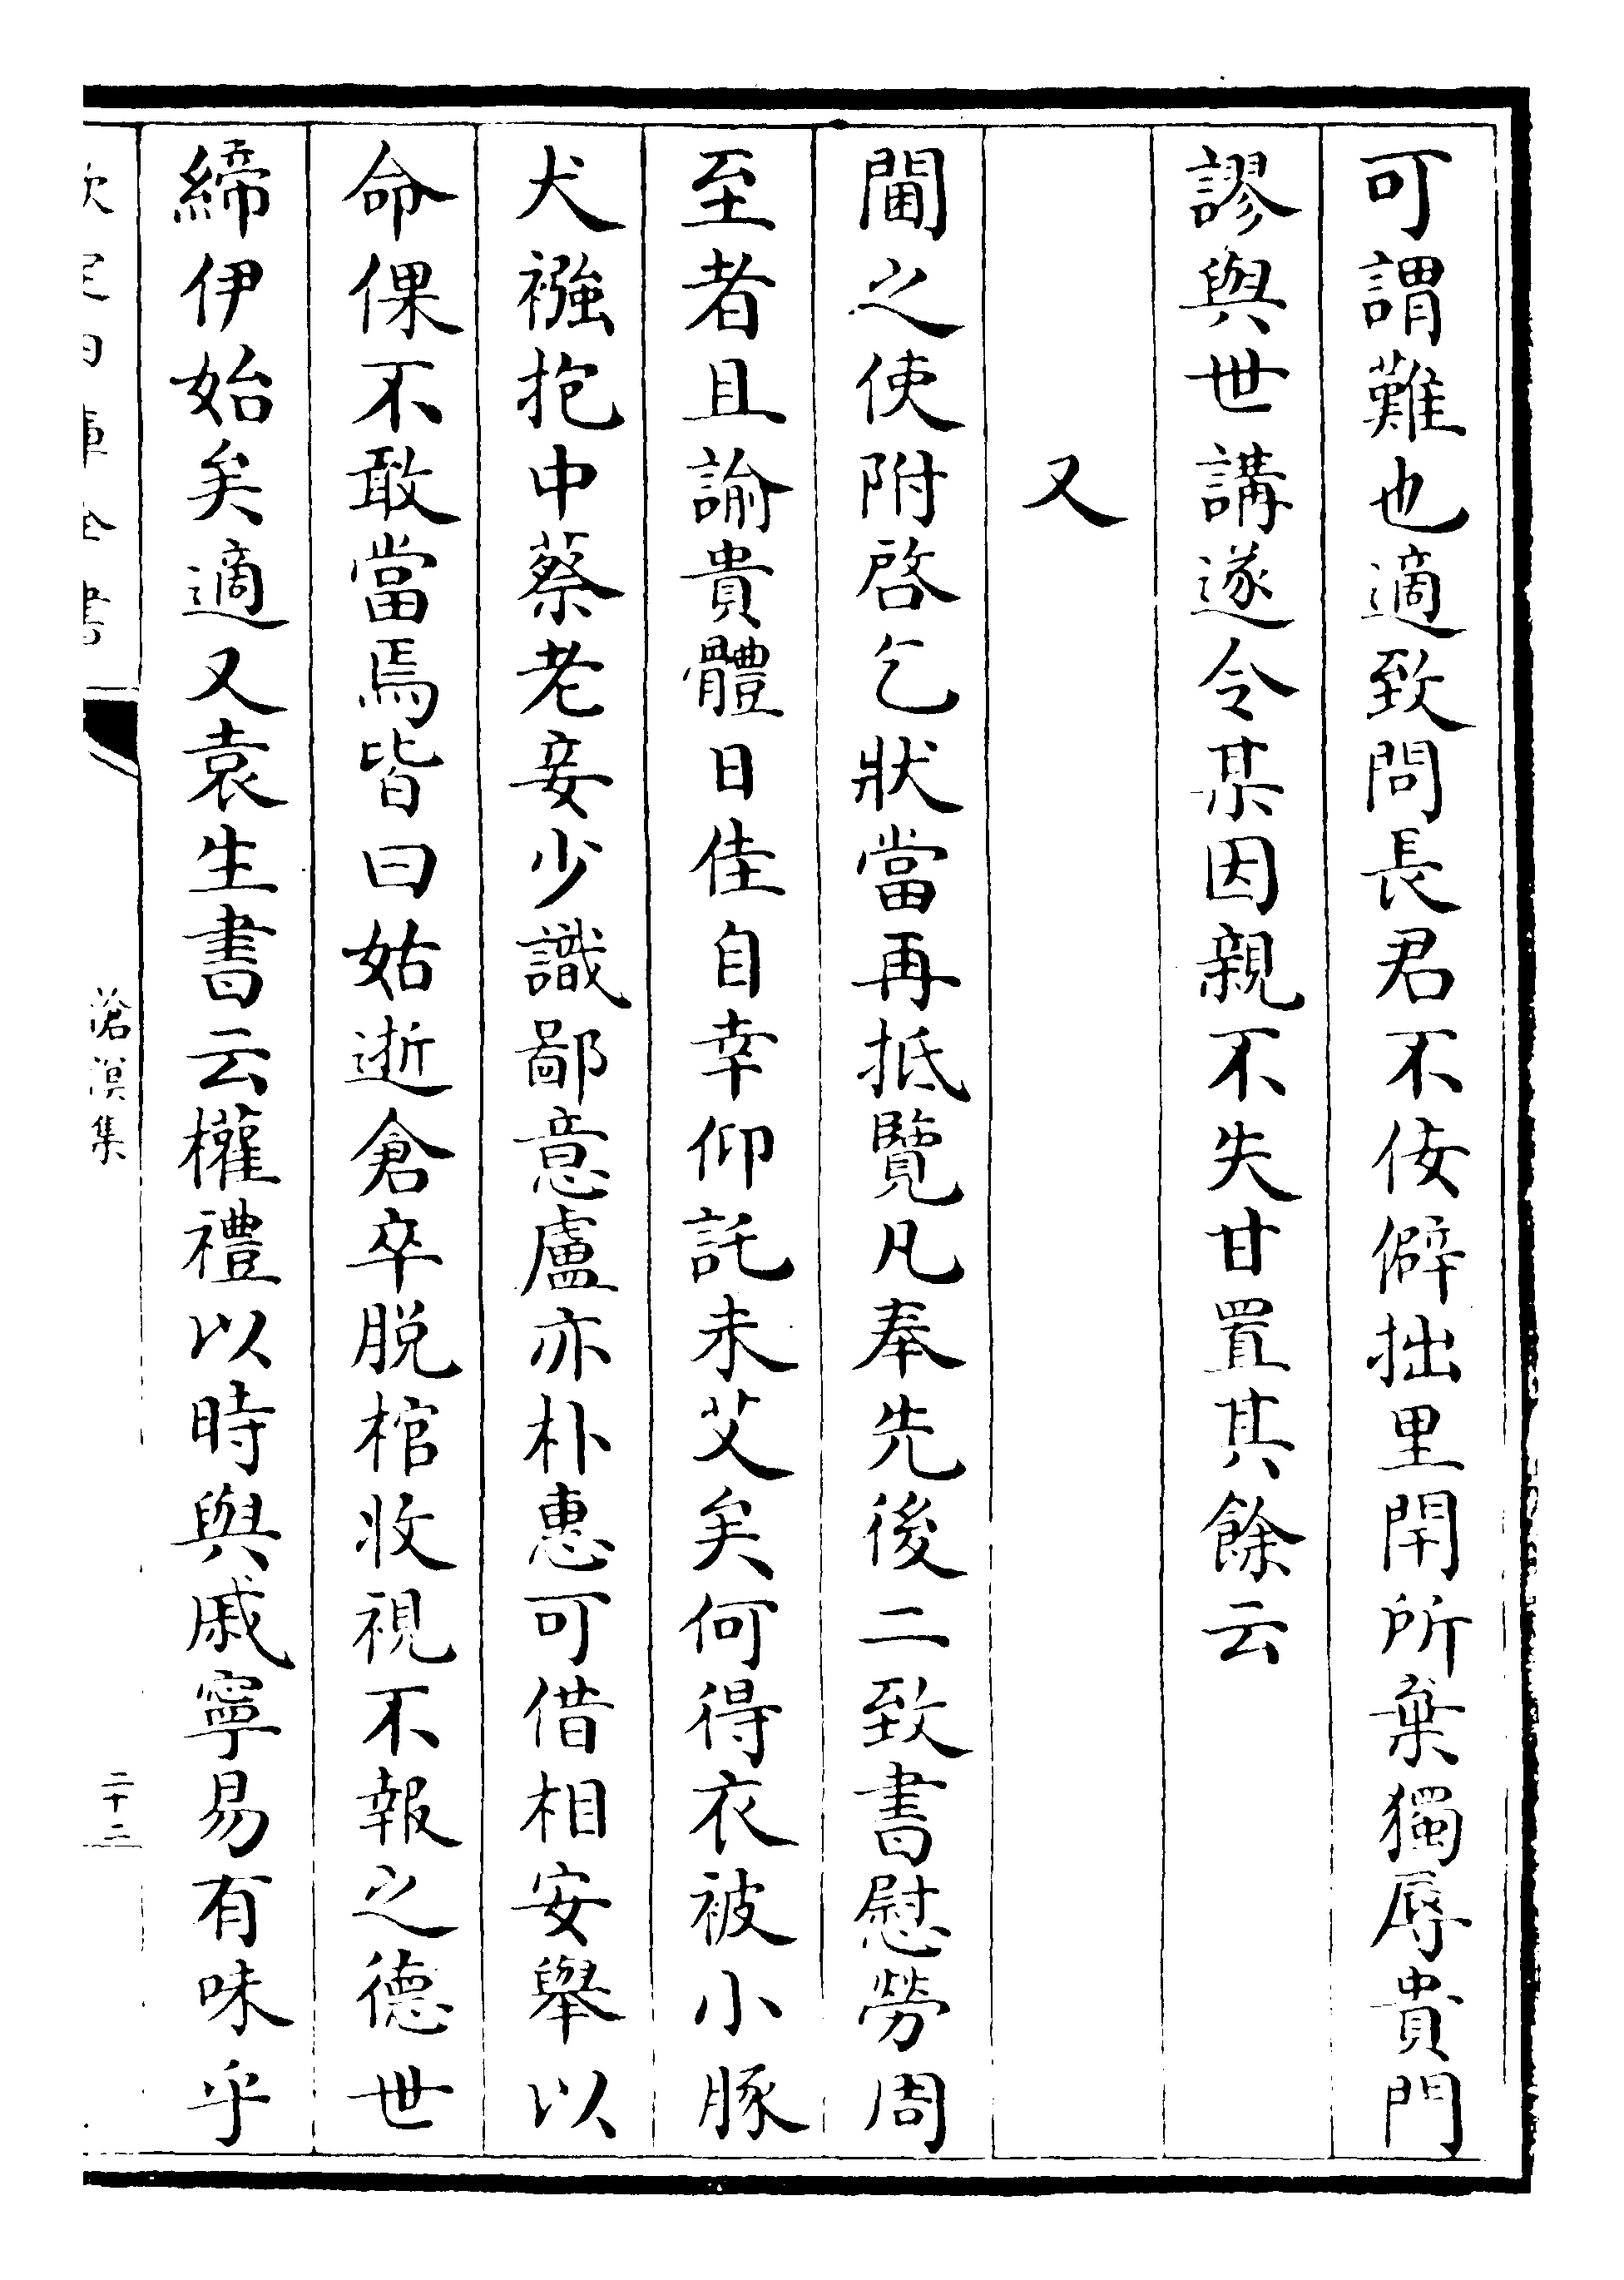 可謂難也適致問長君不佞僻拙里閈所棄獨辱貴門
謬與世講遂令某因親不失甘置其餘云
又
閫之使附啓乞狀當再抵覽凡奉先後二致書慰勞周
至者且諭貴體日佳自幸仰託未艾矣何得衣被小豚
犬襁抱中蔡老妾少識鄙意盧亦朴惠可借相安舉以
命倮不敢當焉皆曰姑逝倉卒脱棺收視不報之德世
締伊始矣適又袁生書云權禮以時與戚寧易有味乎
欽定四庫全書
滄溟集
二十二